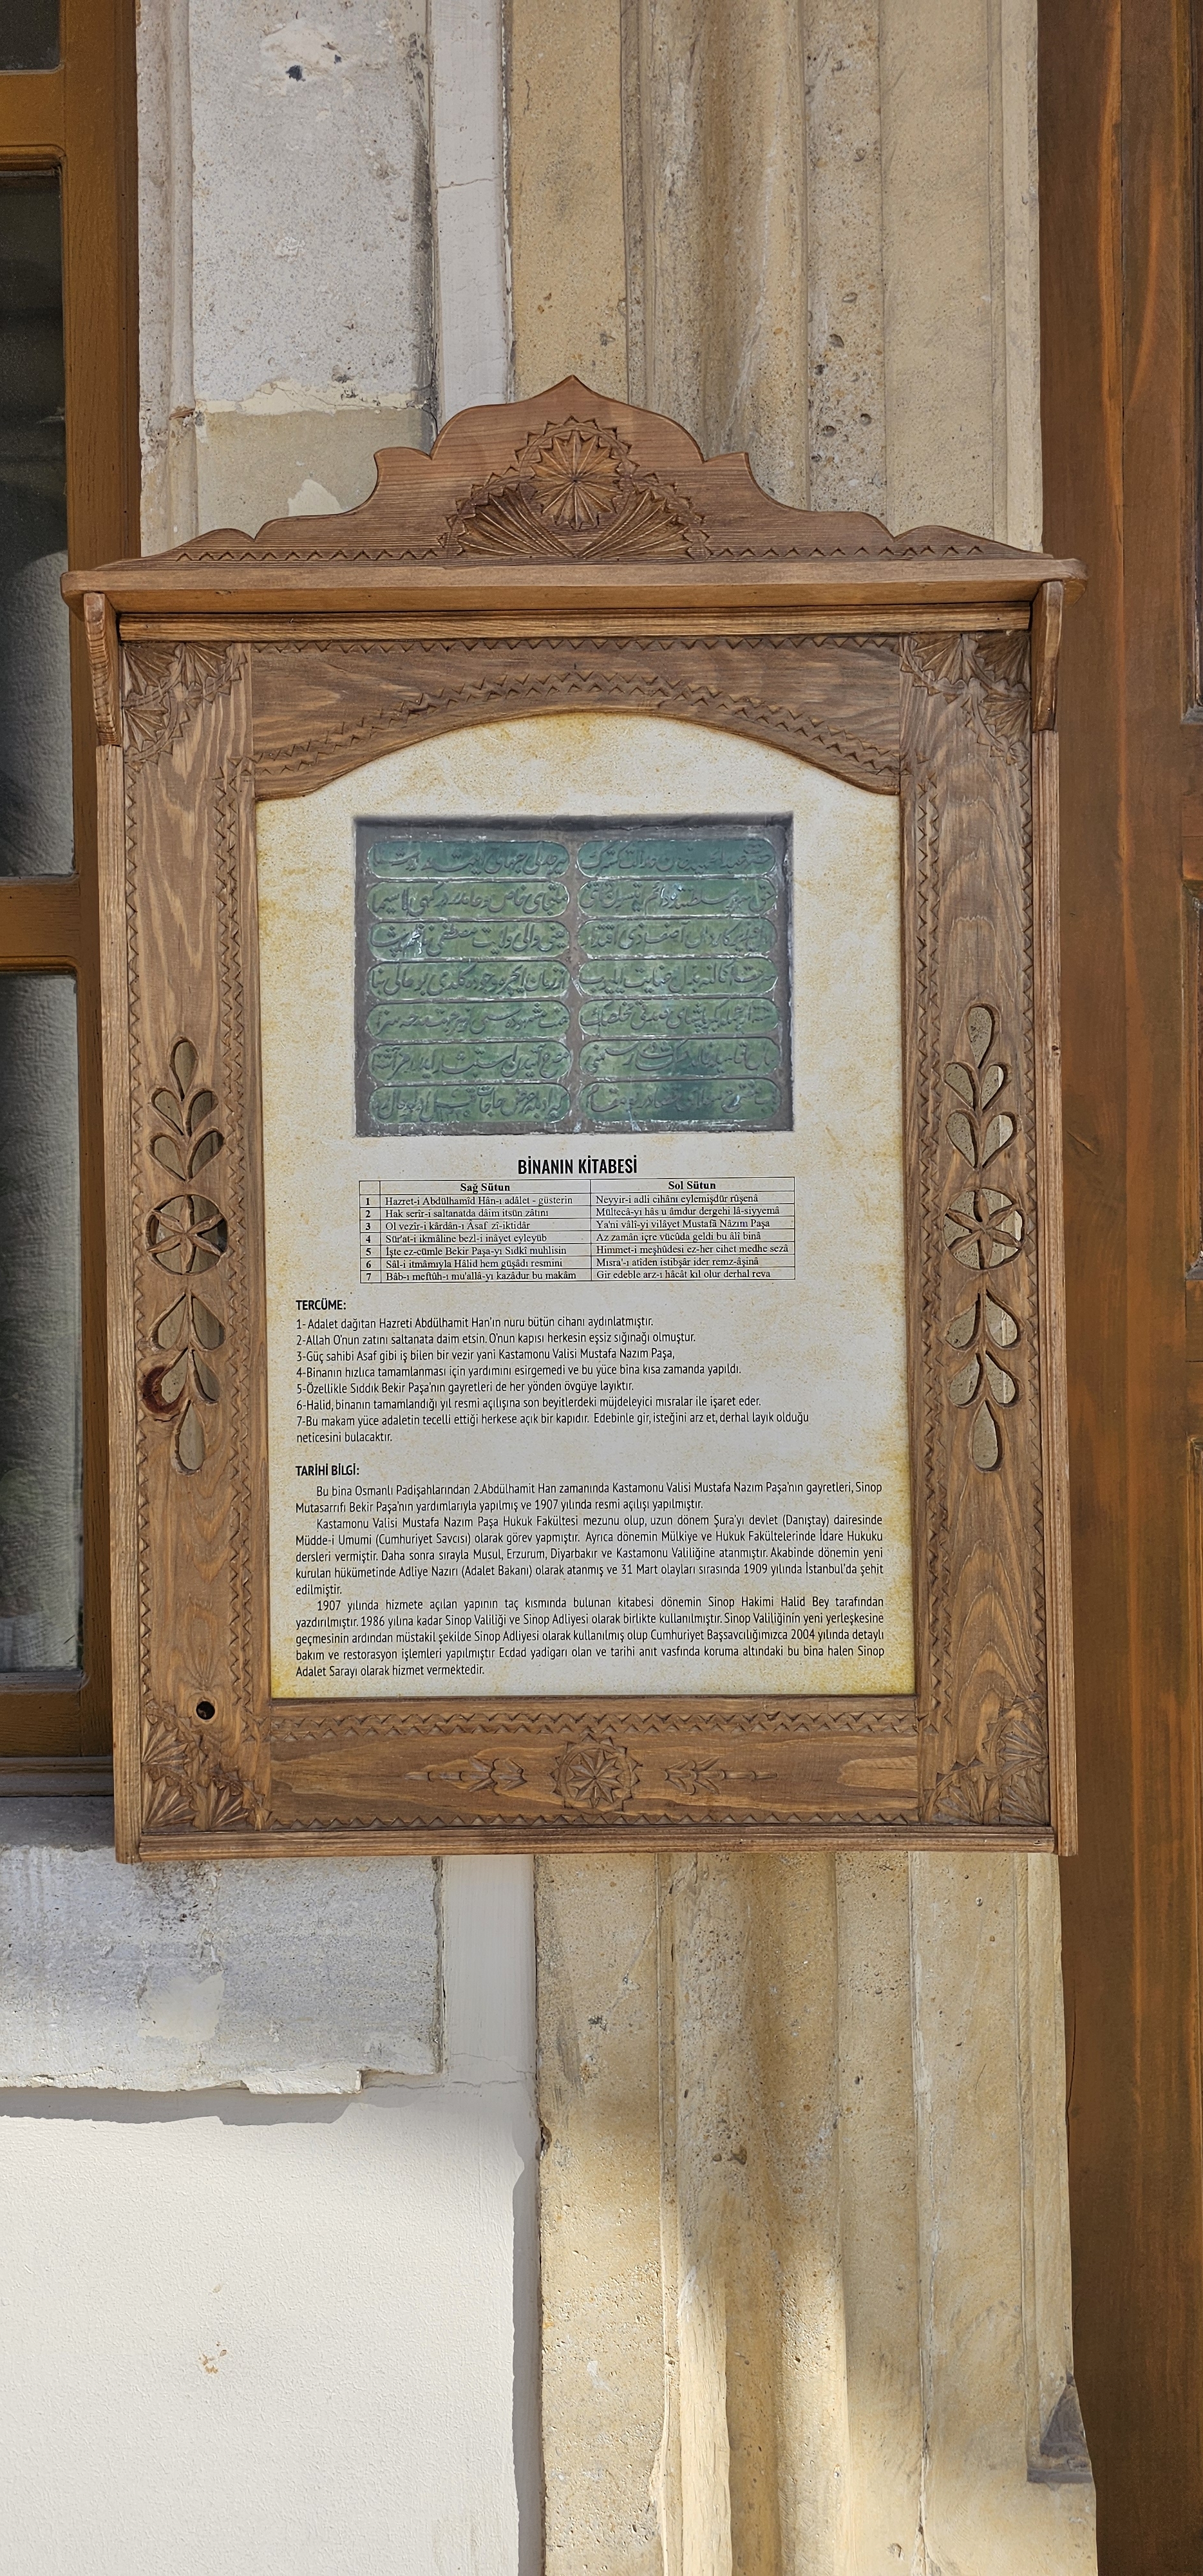 BİNANIN KİTABESİ
Sağ Sütun Sol Sütun
1 Hazret-i Abdülhamîd Hân-ı adâlet - güsterin Neyyir-i adli cihânı eylemişdür rûşenâ
2 Hak serîr-i saltanatda dâim itsün zâtını Mültecâ-yı hâs u âmdur dergehi lâ-siyyemâ
3 Ol vezîr-i kârdân-ı Âsaf zî-iktidâr Ya'ni vâlî-yi vilâyet Mustafâ Nâzım Paşa
4 Sür'at-i ikmâline bezl-i inâyet eyleyüb Az zamân içre vücûda geldi bu âlî binâ
5 İşte ez-cümle Bekir Paşa-yı Sıdkî muhlisin Himmet-i meşhûdesi ez-her cihet medhe sezâ
6 Sâl-i itmâmıyla Hâlid hem güşâdı resmini Mısra'-ı atîden istibşâr ider remz-âşinâ
7 Bâb-ı meftûh-ı mu'allâ-yı kazâdur bu makâm Gir edeble arz-ı hâcât kıl olur derhal reva
TERCÜME:
1- Adalet dağıtan Hazreti Abdülhamit Han'ın nuru bütün cihanı aydınlatmıştır.
2-Allah O'nun zatını saltanata daim etsin. O'nun kapısı herkesin eşsiz sığınağı olmuştur.
3-Güç sahibi Asaf gibi iş bilen bir vezir yani Kastamonu Valisi Mustafa Nazım Paşa,
4-Binanın hızlıca tamamlanması için yardımını esirgemedi ve bu yüce bina kısa zamanda yapıldı.
5-Özellikle Sıddık Bekir Paşa'nın gayretleri de her yönden övgüye layıktır.
6-Halid, binanın tamamlandığı yıl resmi açılışına son beyitlerdeki müjdeleyici mısralar ile işaret eder.
7-Bu makam yüce adaletin tecelli ettiği herkese açık bir kapıdır. Edebinle gir, isteğini arz et, derhal layık olduğu
neticesini bulacaktır.
TARİHİ BİLGİ:
Bu bina Osmanlı Padişahlarından 2.Abdülhamit Han zamanında Kastamonu Valisi Mustafa Nazım Paşa'nın gayretleri, Sinop
Mutasarrıfı Bekir Paşa'nın yardımlarıyla yapılmış ve 1907 yılında resmi açılışı yapılmıştır.
Kastamonu Valisi Mustafa Nazım Paşa Hukuk Fakültesi mezunu olup, uzun dönem Şura'yı devlet (Danıştay) dairesinde
Müdde-i Umumi (Cumhuriyet Savcısı) olarak görev yapmıştır. Ayrıca dönemin Mülkiye ve Hukuk Fakültelerinde İdare Hukuku
dersleri vermiştir. Daha sonra sırayla Musul, Erzurum, Diyarbakır ve Kastamonu Valiliğine atanmıştır. Akabinde dönemin yeni
kurulan hükümetinde Adliye Nazırı (Adalet Bakanı) olarak atanmış ve 31 Mart olayları sırasında 1909 yılında İstanbul'da şehit
edilmiştir.
1907 yılında hizmete açılan yapının taç kısmında bulunan kitabesi dönemin Sinop Hakimi Halid Bey tarafından
yazdırılmıştır. 1986 yılına kadar Sinop Valiliği ve Sinop Adliyesi olarak birlikte kullanılmıştır. Sinop Valiliğinin yeni yerleşkesine
geçmesinin ardından müstakil şekilde Sinop Adliyesi olarak kullanılmış olup Cumhuriyet Başsavcılığımızca 2004 yılında detaylı
bakım ve restorasyon işlemleri yapılmıştır Ecdad yadigarı olan ve tarihi anıt vasfında koruma altındaki bu bina halen Sinop
Adalet Sarayı olarak hizmet vermektedir.